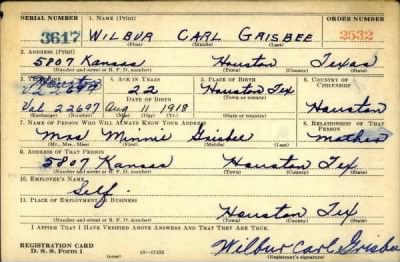 SERIAL NUMBER 1. NAME (Print) ORDER NUMBER
3617 WILBUR CARL GRISBEE 2532
(First) (Middle) (Last)
2. ADDRESS (Print)
5807 Kansas Houston Texas
(Number and street or R. F. D. number) (Town) (County) (State)
3. TELEPHONE 4. AGE IN YEARS 5. PLACE OF BIRTH 6. COUNTRY OF CITIZENSHIP
22 Houston Tex
DATE OF BIRTH
Val. 22697 Aug 11 1918 Houston
7. NAME OF PERSON WHO WILL ALWAYS KNOW YOUR ADDRESS 8. RELATIONSHIP OF THAT PERSON
Mrs Minnie Grisbee Mother
(Mr., Mrs., Miss) (First) (Middle) (Last)
9. ADDRESS OF THAT PERSON
5807 Kansas Houston Tex
(Number and street or R. F. D. number) (Town) (County) (State)
10. EMPLOYER'S NAME
Self
11. PLACE OF EMPLOYMENT OR BUSINESS
Houston Tex
(Number and street or R. F. D. number) (Town) (County) (State)
I AFFIRM THAT I HAVE VERIFIED ABOVE ANSWERS AND THAT THEY ARE TRUE.
REGISTRATION CARD Wilbur Carl Grisbee
D. S. S. Form 1 (Registrant's signature)